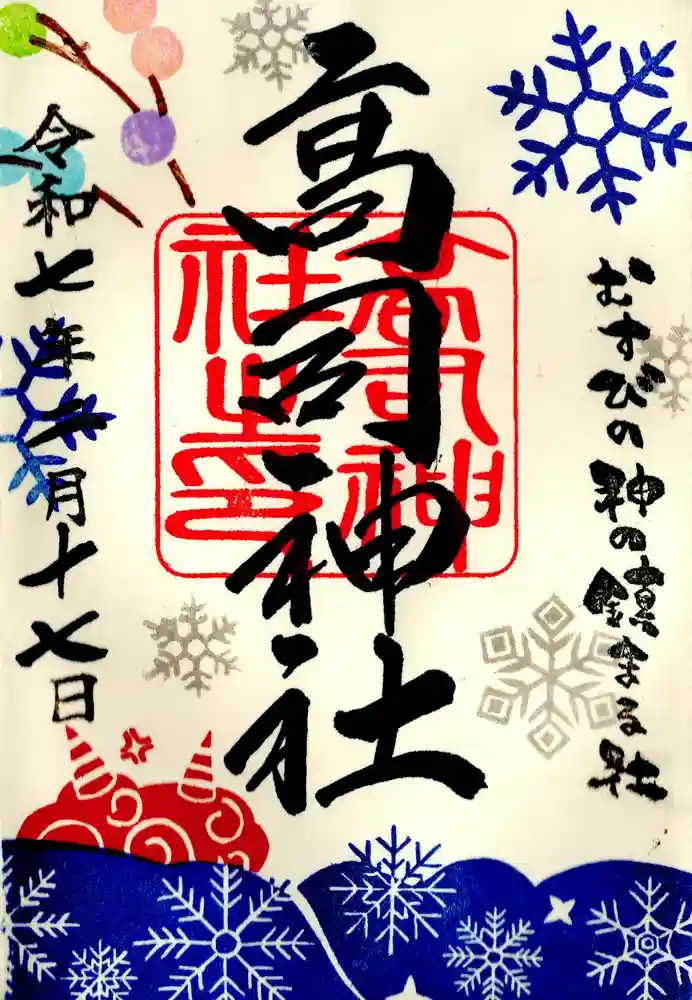 おむすびの神の鎮まる社
高司神社
高司神
社之印
令和七年二月十七日